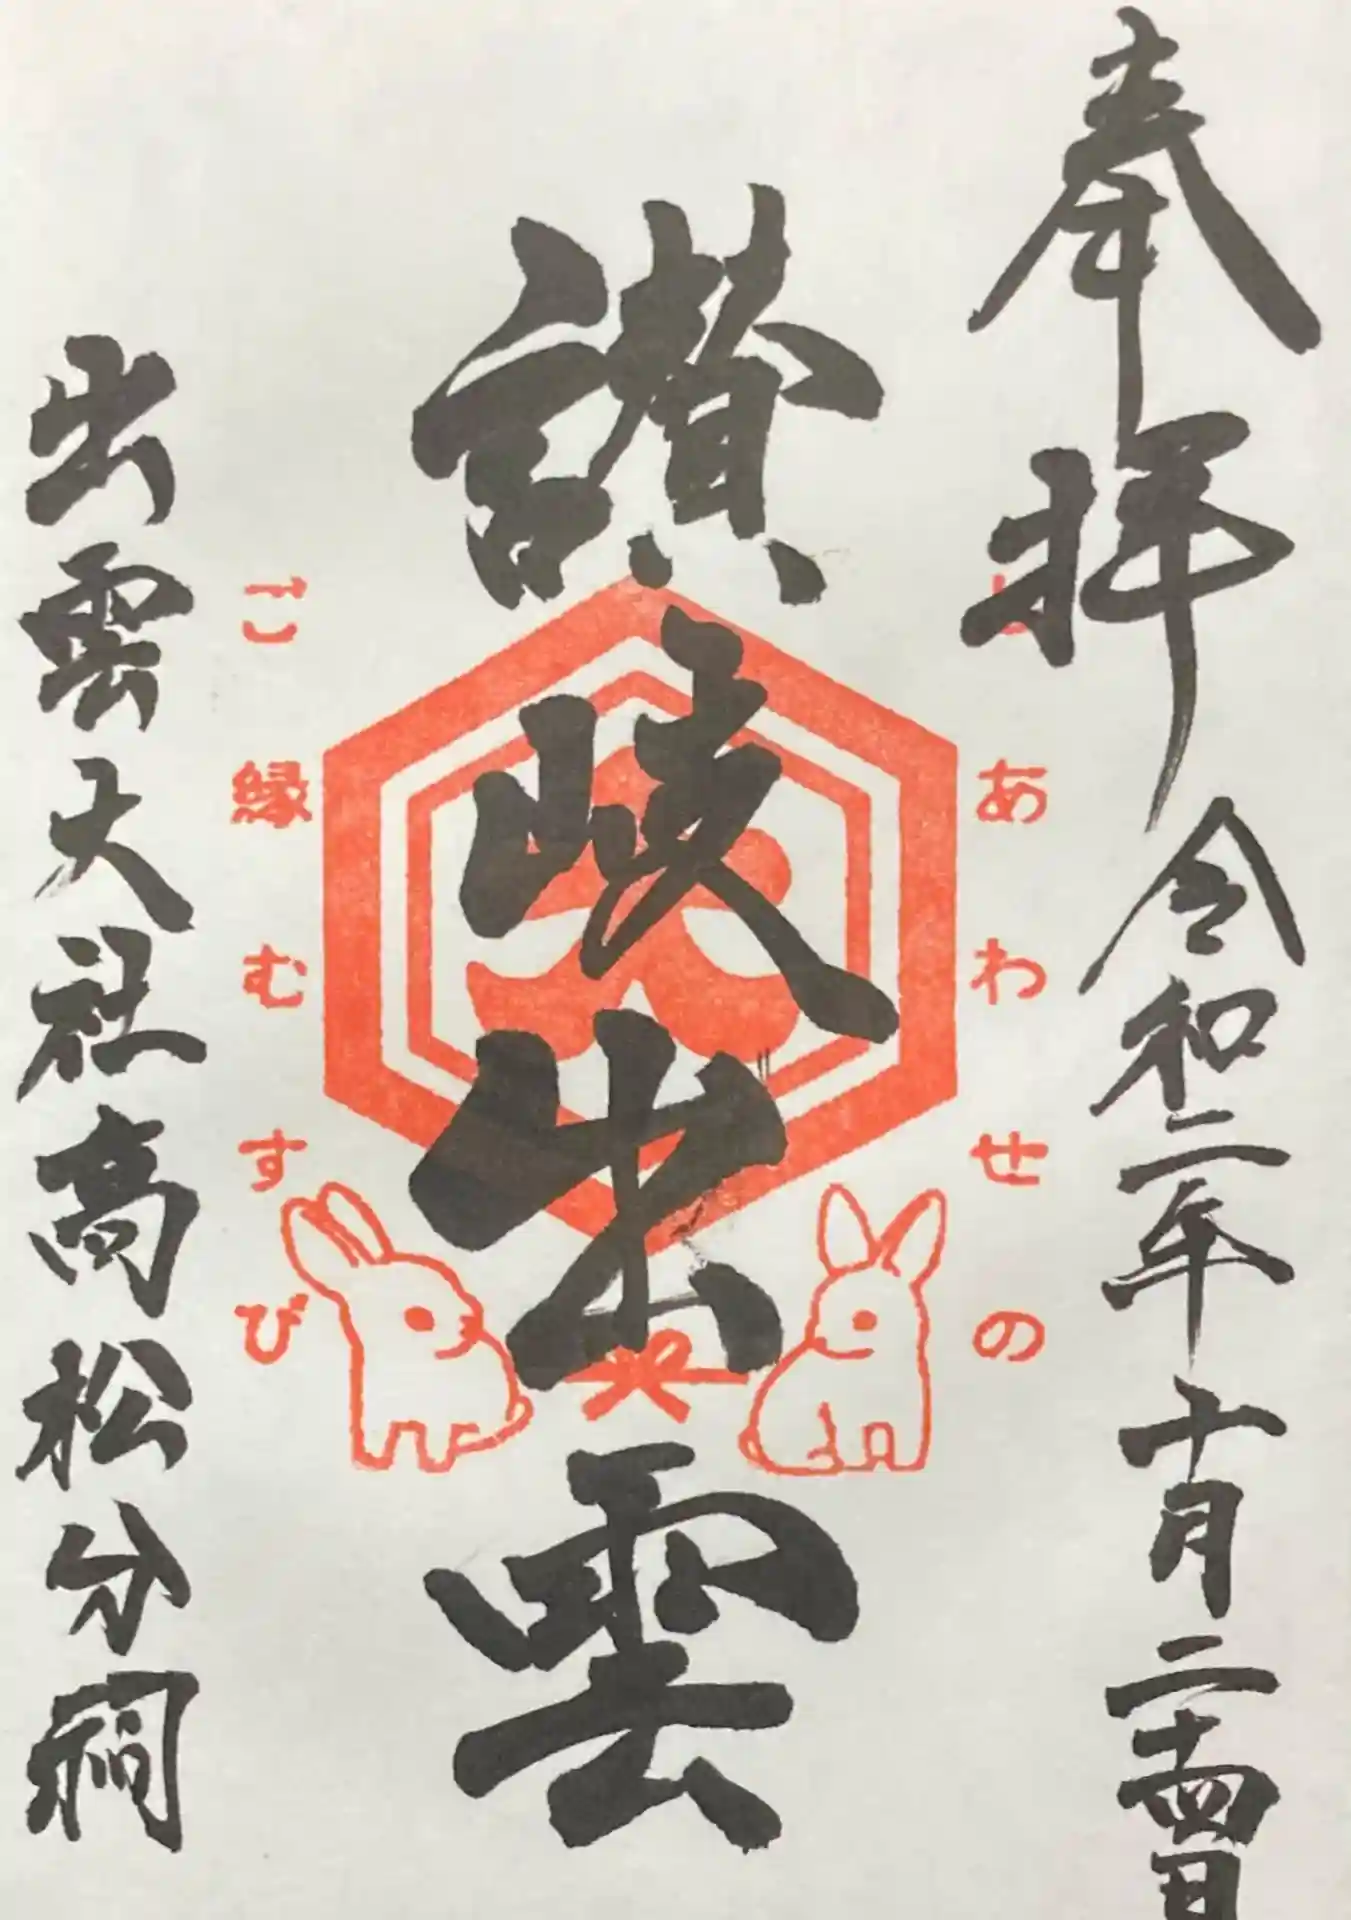 奉拝
令和二年十月二十四日
しあわせの
讃岐出雲
ご縁むすび
出雲大社高松分祠